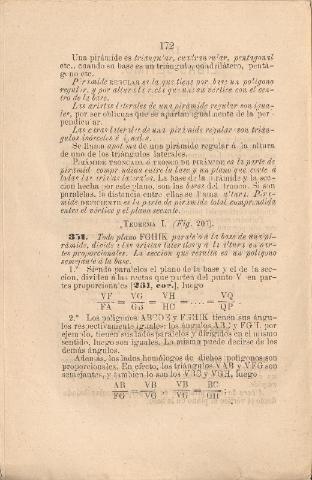 172
Una pirámide es triangular, cuadrangular, pentagonal
etc., cuando su base es un triángulo, cuadrilátero, pentá-
gono etc.
Pirámide REGULAR es la que tiene por base un polígono
regular, y por altura la recta que une su vértice con el cen-
tro de la base.
Las aristas laterales de una pirámide regular son igua-
les, por ser oblicuas que se apartan igualmente de la per-
pendicular.
Las caras laterales de una pirámide regular son trián-
gulos isósceles é iguales.
Se llama apotema de una pirámide regular á la altura
de uno de los triángulos laterales.
PIRÁMIDE TRONCADA ó TRONCO DE PIRÁMIDE es la parte de
pirámide comprendida entre la base y un plano que corte á
todas las aristas laterales. La base de la pirámide y la sec-
cion hecha por este plano, son las bases del tronco. Si son
paralelas, la distancia entre ellas se llama altura. Pirá-
mide DEFICIENTE es la parte de pirámide total comprendida
entre el vértice y el plano secante.
TEOREMA I. (Fig. 207).
351. Todo plano FGHIK paralelo á la base de una pi-
rámide, divide á las aristas laterales y á la altura en par-
tes proporcionales. La seccion que resulta es un polígono
semejante á la base.
1.° Siendo paralelos el plano de la base y el de la sec-
cion, dividen á las rectas que parten del punto V en par-
tes proporcionales [281, cor.], luego
VF/FA = VG/GB = VH/HC = .... = VQ/QP.
2.° Los polígonos ABCDE y FGHIK tienen sus ángu-
los respectivamente iguales: los ángulos ABC y FGH, por
ejemplo, tienen sus lados paralelos y dirigidos en el mismo
sentido, luego son iguales. Lo mismo puede decirse de los
demás ángulos.
Además, los lados homólogos de dichos polígonos son
proporcionales. En efecto, los triángulos VAB y VFG son
semejantes, y tambien lo son los VBC y VGH, luego
AB/FG = VB/VG VB/VG = BC/GH;